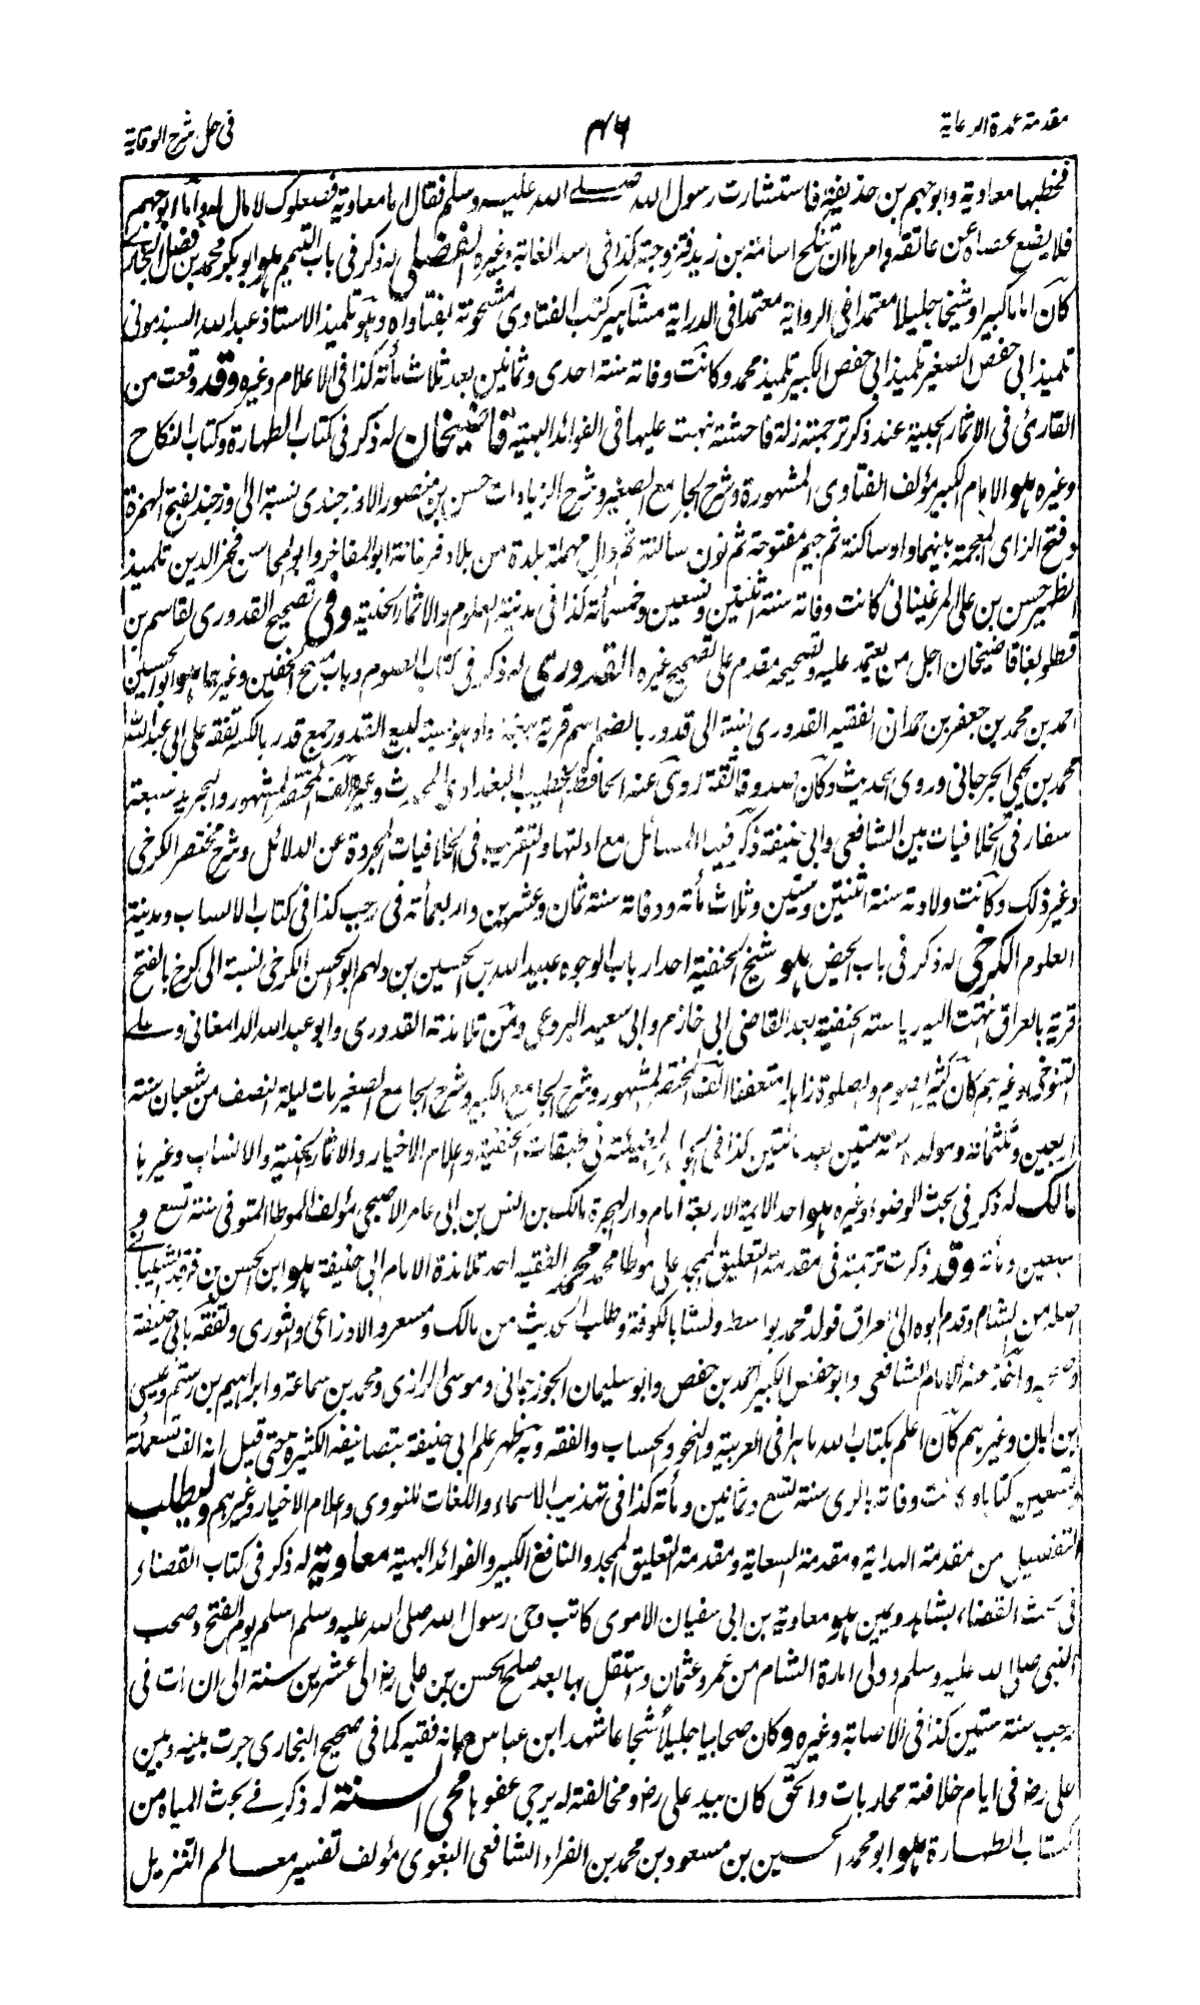 مقدمة عمدة الرعاية
٣٦
فى حل شرح الوقاية
فخطبها معاوية وابوجهم بن حذيفة فاستشارت رسول الله صلى الله عليه وسلم فقال اما معاوية فصعلوك لا مال له واما ابوجهم
فلا يضع عصاه عن عاتقه وامرها ان تنكح اسامة بن زيد فتزوجته كذا فى اسد الغابة وغيره الفضلى له ذكر فى باب التيمم هو ابوبكر محمد بن فضل البخارى
كان اماما كبيرا وشيخا جليلا معتمدا فى الرواية معتمدا فى الدراية مشاهير كتب الفتاوى مشحونة بفتاواه وهو تلميذ الاستاذ عبدالله السبذمونى
تلميذ ابى حفص الصغير تلميذ ابى حفص الكبير تلميذ محمد وكانت وفاته سنة احدى وثمانين بعد ثلاث مأته كذا فى الاعلام وغيره وقد وقعت من
القارئ فى الاثمار الجنية عند ذكر ترجمته زلة فاحشة نبهت عليها فى الفوائد البهية قاضيخان له ذكر فى كتاب الطهارة وكتاب النكاح
وغيره هو الامام الكبير مؤلف الفتاوى المشهورة وشرح الجامع الصغير وشرح الزيادات حسن بن منصور الاوزجندى نسبة الى اوزجند بفتح الهمزة
وفتح الزاى المعجمة بينهما واو ساكنة ثم جيم مفتوحة ثم نون ساكنة ثم دال مهملة بلدة من بلاد فرغانة ابوالمفاخر وابوالمحاسن فخر الدين تلميذ
الظهير حسن بن على المرغينانى كانت وفاته سنة اثنتين وتسعين وخمسمأته كذا فى مدينة العلوم والاثمار الجنية وفى تصحيح القدورى لقاسم بن
قطلوبغا قاضيخان اجل من يعتمد عليه وتصحيحه مقدم على تصحيح غيره القدورى له ذكر فى كتاب الصوم وباب مسح الخفين وغيرهما هو ابوالحسين
احمد بن محمد بن جعفر بن حمدان الفقيه القدورى نسبة الى قدور بالضم اسم قرية ببغداد او هو نسبة لبيع القدور جمع قدر بالكسر تفقه على ابى عبدالله
محمد بن يحيى الجرجانى وروى الحديث وكان صدوقا ثقة روى عنه الحافظ الخطيب البغدادى المحدث وغيره الف المختصر المشهور والتجريد سبعة
سفار فى الخلافيات بين الشافعى وابى حنيفة ذكر فيها المسائل مع ادلتها والتقريب فى الخلافيات المجردة عن الدلائل وشرح مختصر الكرخى
وغير ذلك وكانت ولادته سنة اثنتين وستين وثلاث مأته ووفاته سنة ثمان وعشرين واربعمأته فى رجب كذا فى كتاب الانساب ومدينة
العلوم الكرخى له ذكر فى باب الحيض هو شيخ الحنفية احد ارباب الوجوه عبيد الله بن الحسين بن دلهم ابوالحسن الكرخى نسبة الى كرخ بالفتح
قرية بالعراق انتهت اليه رياسته الحنفية بعد القاضى ابى خازم وابى سعيد البردعى ومن تلامذته القدورى وابوعبدالله الدامغانى وعلى
التنوخى وغيرهم كان كثير الصوم والصلوة زاهدا متعففا الف المختصر المشهور وشرح الجامع الكبير وشرح الجامع الصغير مات ليلة النصف من شعبان سنة
اربعين وثلثمائة ومولده سنة ستين بعد مائتين كذا فى الجواهر المضيئة فى طبقات الحنفية واعلام الاخيار والاثمار الجنية والانساب وغيرها
مالك له ذكر فى بحث الوضوء وغيره هو احد الائمة الاربعة امام دارالهجرة مالك بن انس بن ابى عامر الاصبحى مؤلف الموطا المتوفى سنة تسع و
سبعين ومأته وقد ذكرت ترجمته فى مقدمة التعليق الممجد على موطا محمد محمد الفقيه احد تلامذة الامام ابى حنيفة هو ابن الحسن بن فرقد الشيبانى
اصله من الشام وقدم ابوه الى العراق فولد محمد بواسط ونشا بالكوفة وطلب الحديث من مالك ومسعر والاوزاعى والثورى وتفقه بابى حنيفة
وصحبه واخذ عنه الامام الشافعى وابوحفص الكبير احمد بن حفص وابوسليمان الجوزجانى وموسى الرازى ومحمد بن سماعة وابراهيم بن رستم وعيسى
بن ابان وغيرهم كان اعلم بكتاب الله ماهرا فى العربية والنحو والحساب والفقه وبه ظهر علم ابى حنيفة بتصانيفه الكثيرة حتى قيل انه الف تسعمأته
وتسعين كتابا وكانت وفاته بالرى سنة تسع وثمانين ومأته كذا فى تهذيب الاسماء واللغات للنووى واعلام الاخيار وغيرهم وليطلب
التفصيل من مقدمة الهداية ومقدمة السعاية ومقدمة التعليق الممجد والنافع الكبير والفوائد البهية معاوية له ذكر فى كتاب القضاء
فى بحث القضاء بشاهد ويمين هو معاوية بن ابى سفيان الاموى كاتب وحى رسول الله صلى الله عليه وسلم اسلم يوم الفتح وصحب
النبى صلى الله عليه وسلم وولى امارة الشام من عمر وعثمان واستقل بها بعد صلح الحسن بن على رض الى عشرين سنة الى ان مات فى
رجب سنة ستين كذا فى الاصابة وغيره وكان صحابيا جليلا شجاعا شهد ابن عباس بانه فقيه كما فى صحيح البخارى جرت بينه وبين
على رض فى ايام خلافته محاربات والحق كان بيد على رض ومخالفة له يرجى عفوها محى السنة له ذكر فى بحث المياه من
كتاب الطهارة هو ابومحمد الحسين بن مسعود بن محمد بن الفراء الشافعى البغوى مؤلف تفسير معالم التنزيل